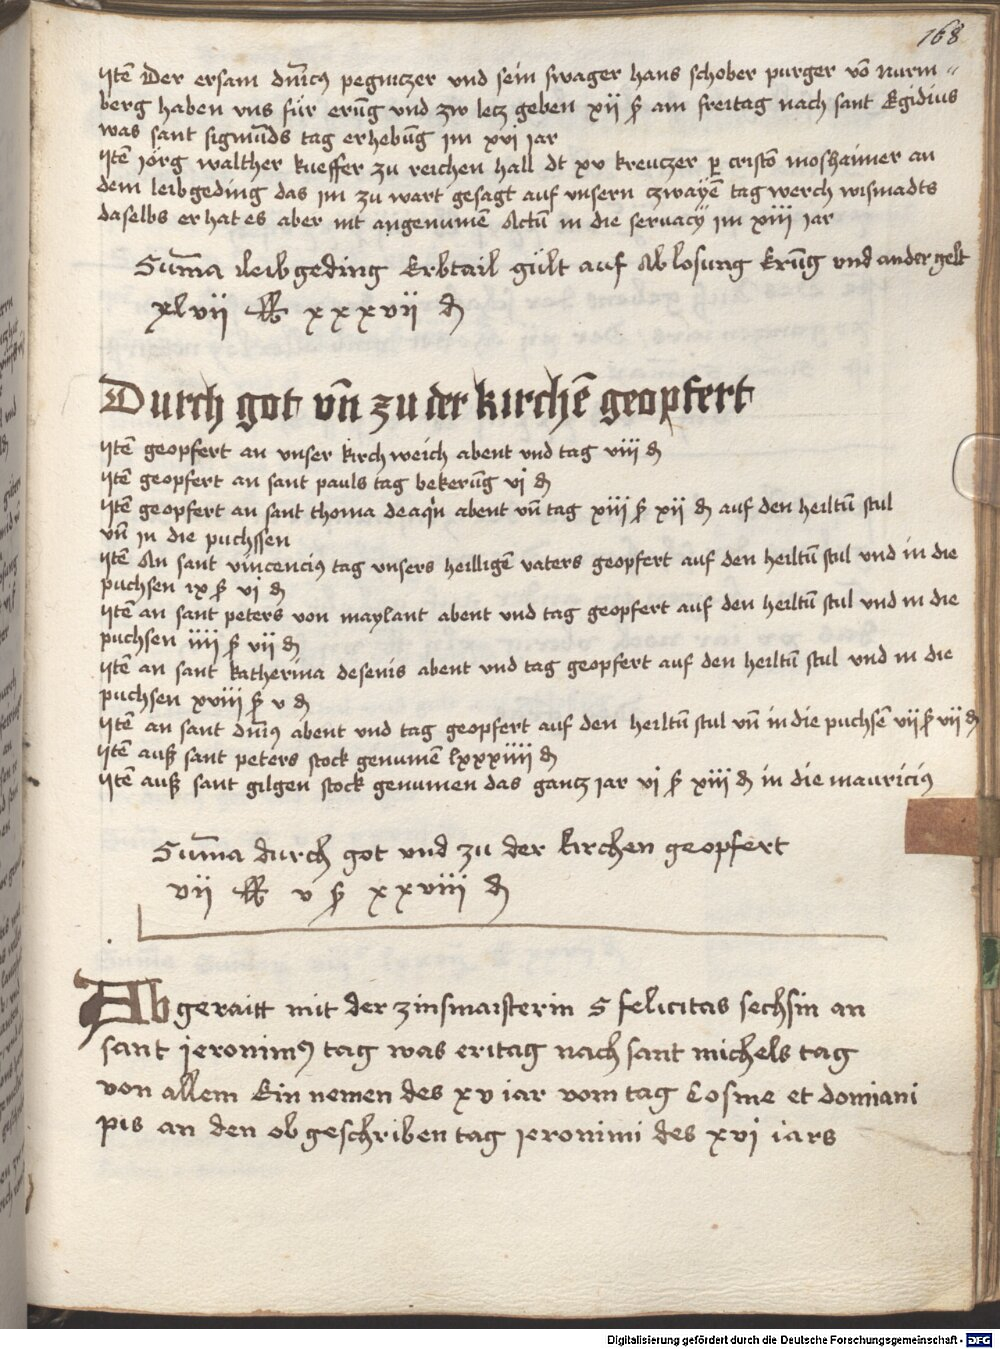 168
Itē Der ersam dn̄icꝰ pegniczer vnd sein swager hans schober purger vō nurm-
berg haben vns für erūg vnd zw letz geben xij ß am freitag nach sant Egidius
was sant sigmūds tag erhebūg im xvi iar
Itē Jörg walther kueffer zu reichen hall dt xv kreuczer p cristō moshaimer an
dem leibgeding das im zu wart gesagt auf vnsern czwayē tagwerch wismadts
daselbs er hat es aber nit angenumē Actū in die seruacÿ im xiiij iar
Sum̄a leibgeding Erbtail gült auf Ablosung Erūg vnd ander gelt
xlvij ℔ xxxvij ₰
Durch got vn̄ zu der kirchē geopfert
Itē geopfert an vnser kirchweich abent vnd tag viij ₰
Itē geopfert an sant pauls tag bekerūg vj ₰
Itē geopfert an sant thoma de aqͥn abent vn̄ tag xiij ß xij ₰ auf den heiltū stul
vn̄ in die puchssen
Itē An sant vincenciꝰ tag vnsers heilligē vaters geopfert auf den heiltū stul vnd in die
puchsen ix ß vj ₰
Itē an sant peters von maylant abent vnd tag geopfert auf den heiltū stul vnd in die
puchsen iiij ß vij ₰
Itē an sant katherina de senis abent vnd tag geopfert auf den heiltū stul vnd in die
puchsen xviij ß v ₰
Itē an sant dn̄iꝰ abent vnd tag geopfert auf den heiltū stul vn̄ in die puchsē vij ß vij ₰
Itē auß sant peters stock genumē lxxxiiij ₰
Itē auß sant gilgen stock genumen das gantz iar vj ß xiij ₰ in die mauriciꝰ
Sum̄a durch got vnd zu der kirchen geopfert
vij ℔ v ß xxviij ₰
Abgeraitt mit der zinsmaisterin S felicitas sechsin an
sant jeronimꝰ tag was eritag nach sant michels tag
von allem Ein nemen des xv iar vom tag Cosme et domiani
pis an den obgeschriben tag jeronimi des xvj iars
Digitalisierung gefördert durch die Deutsche Forschungsgemeinschaft - DFG